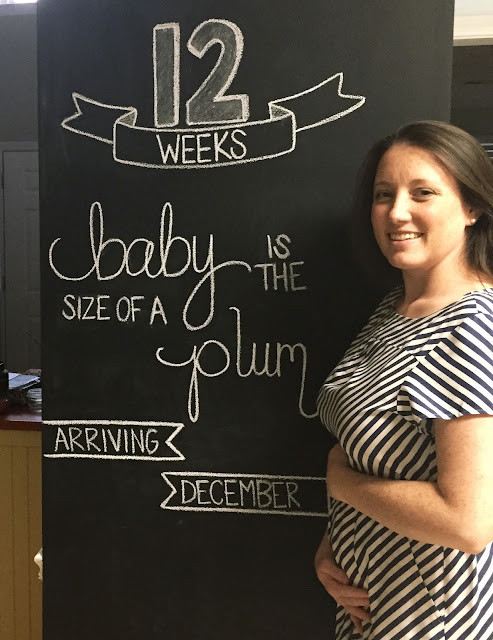 12
WEEKS
baby IS
THE
SIZE OF A
plum
ARRIVING
DECEMBER